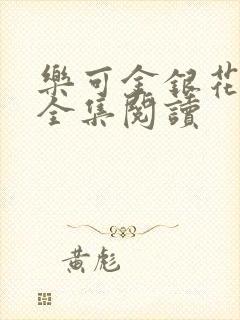 樂可金銀花
全集閱讀
黃彪